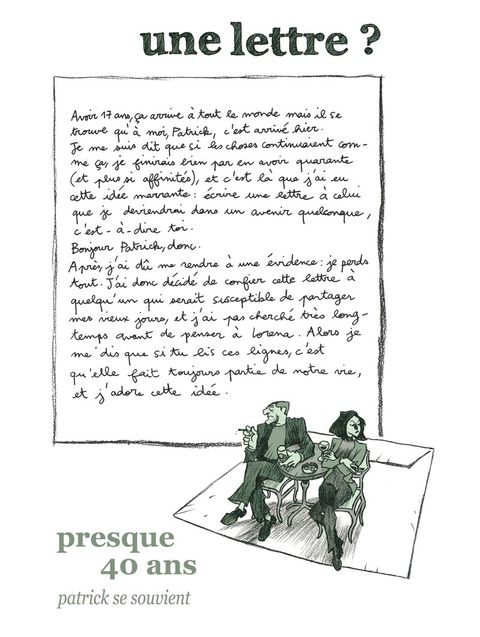 une lettre ?
Avoir 17 ans, ça arrive à tout le monde mais il se
trouve qu'à moi, Patrick, c'est arrivé hier.
Je me suis dit que si les choses continuaient com-
me ça, je finirais bien par en avoir quarante
(et plus si affinités), et c'est là que j'ai eu
cette idée marrante : écrire une lettre à celui
que je deviendrai dans un avenir quelconque,
c'est-à-dire toi.
Bonjour Patrick, donc.
Après, j'ai dû me rendre à une évidence : je perds
tout. J'ai donc décidé de confier cette lettre à
quelqu'un qui serait susceptible de partager
mes vieux jours, et j'ai pas cherché très long-
temps avant de penser à Lorena. Alors je
me dis que si tu lis ces lignes, c'est
qu'elle fait toujours partie de notre vie,
et j'adore cette idée.
presque
40 ans
patrick se souvient